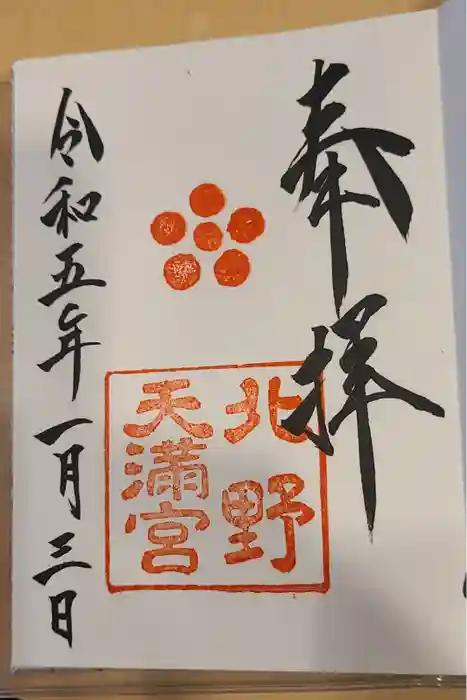 奉拝
北野
天満宮
令和五年一月三日